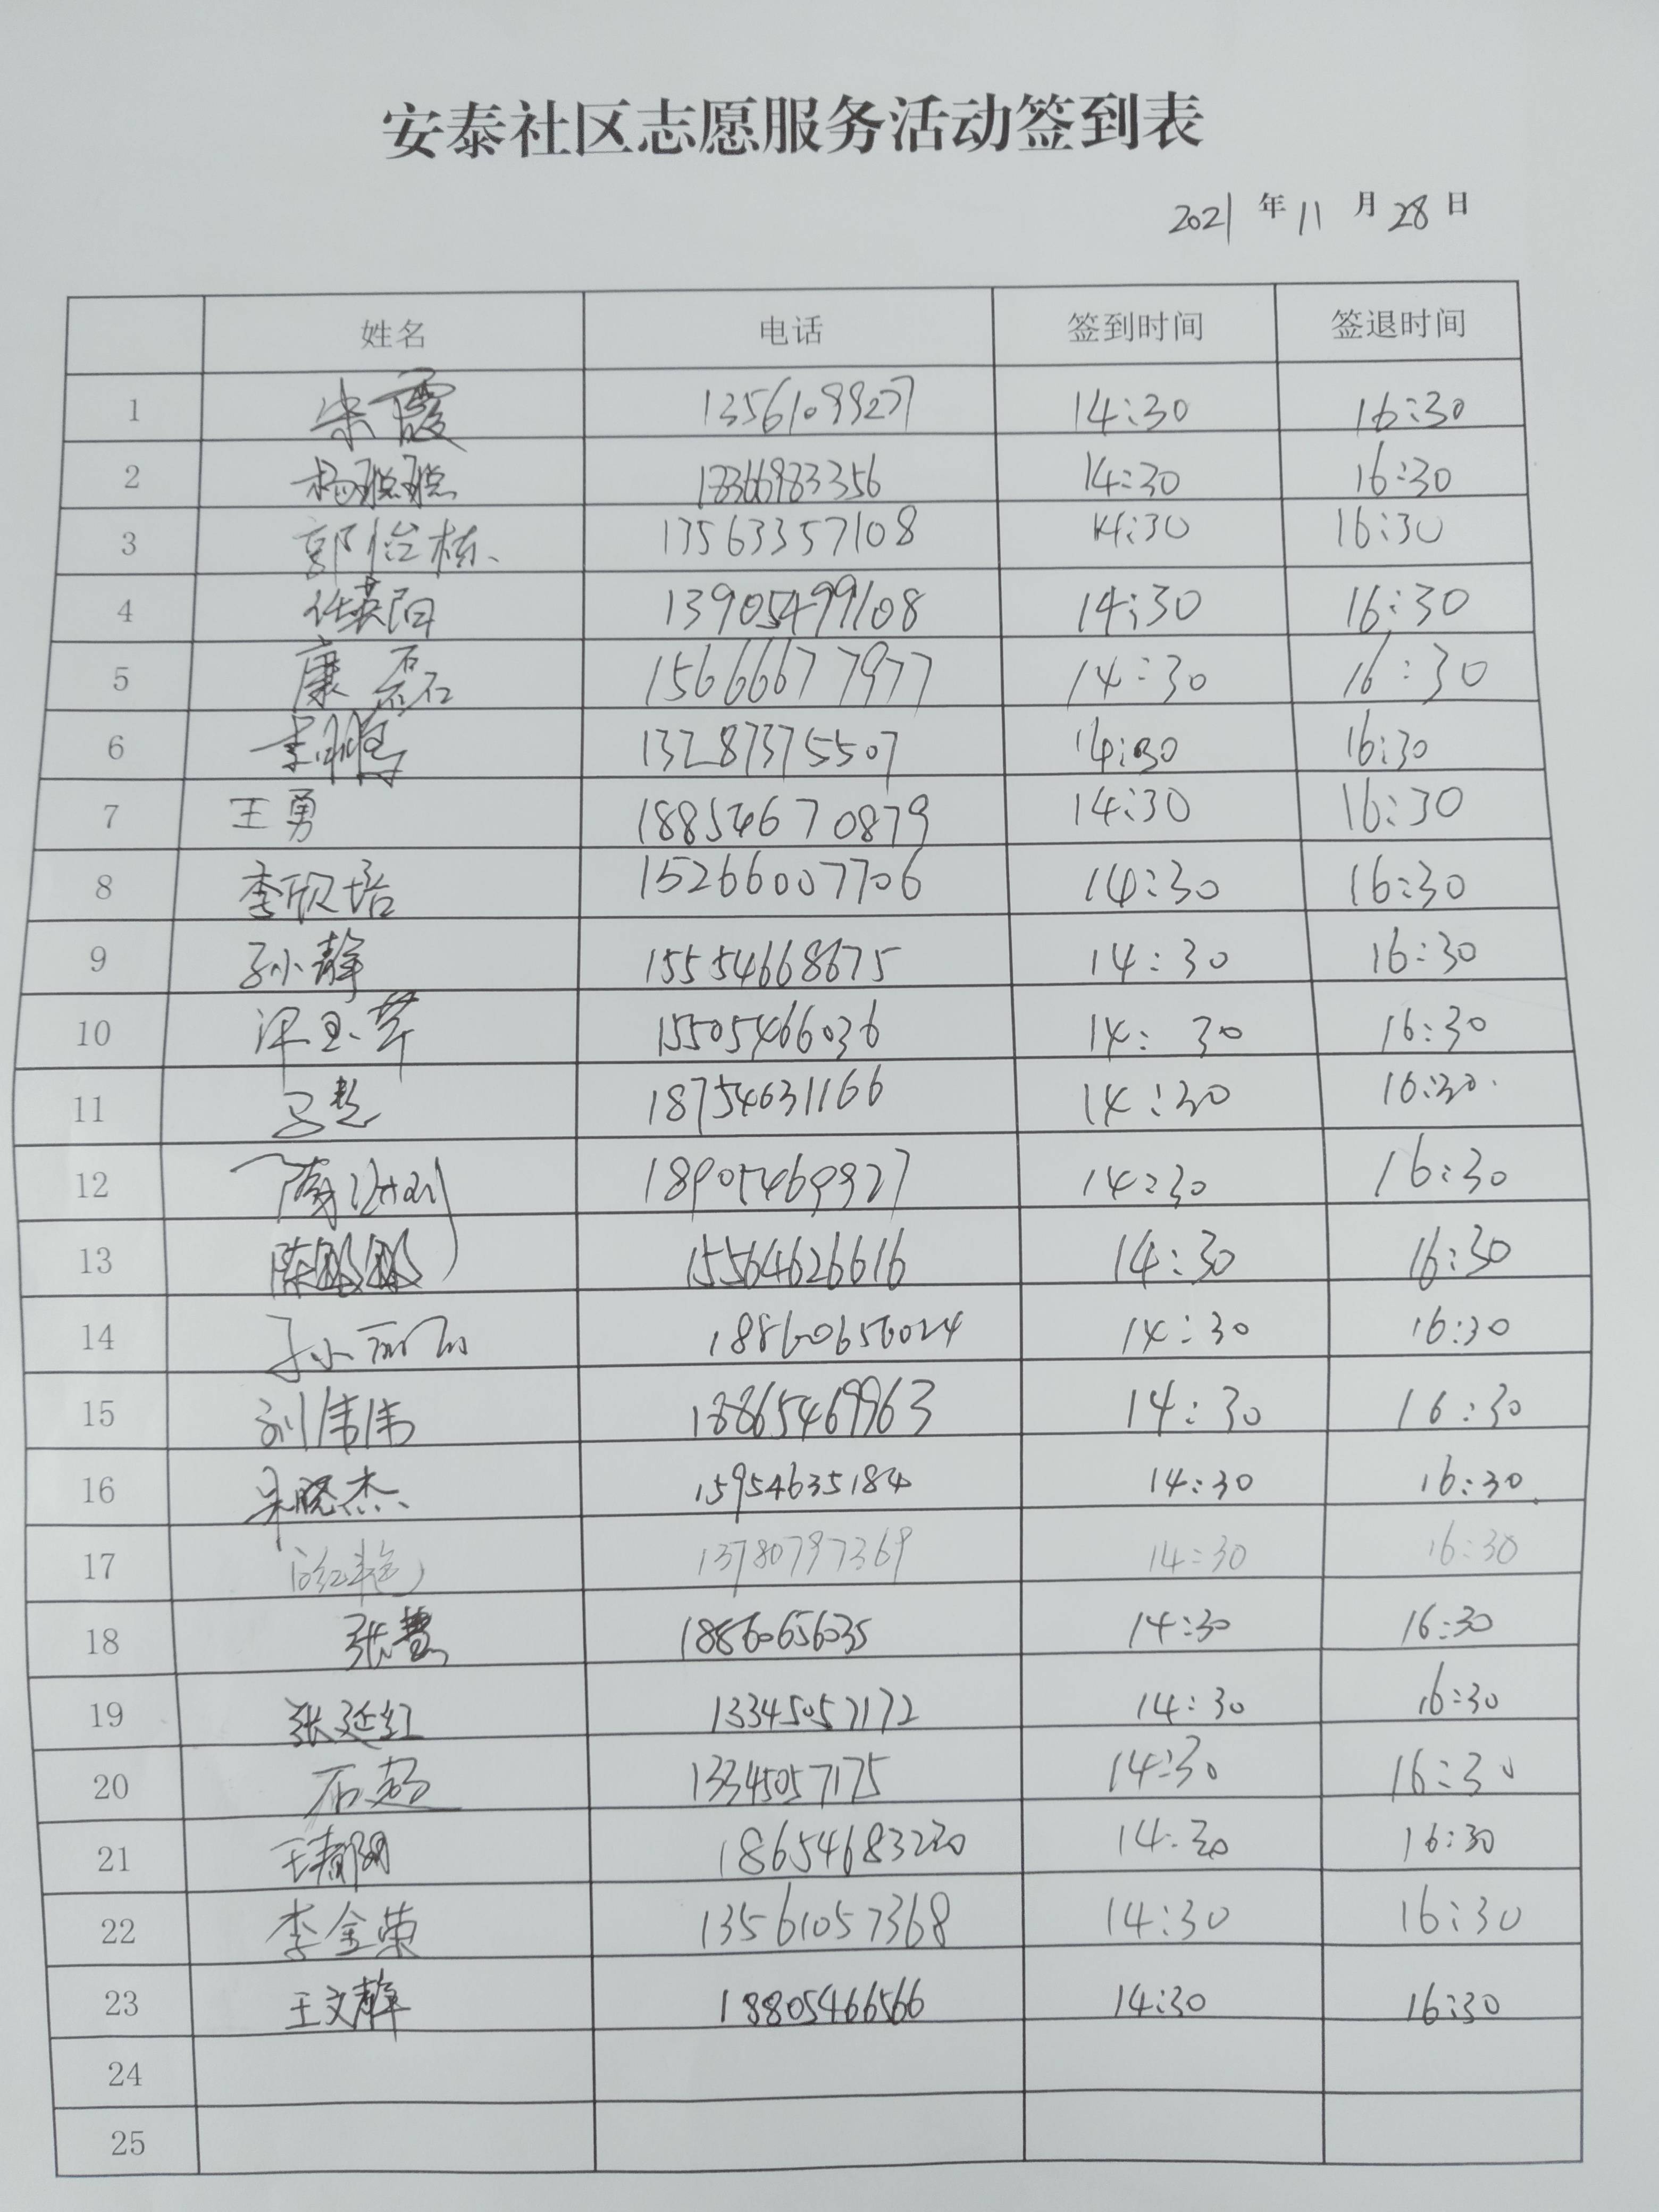 安泰社区志愿服务活动签到表
2021 年 11 月 28 日
姓名 电话 签到时间 签退时间
1 宋霞 13561099277 14:30 16:30
2 杨聪聪 18366983356 14:30 16:30
3 郭怡栋 13563357108 14:30 16:30
4 任英阳 13905499108 14:30 16:30
5 康磊 15666677977 14:30 16:30
6 13287375507 14:30 16:30
7 王勇 18854670879 14:30 16:30
8 李欣培 15266007706 14:30 16:30
9 孙小静 15554668675 14:30 16:30
10 15505466036 14:30 16:30
11 18754631166 14:30 16:30
12 18905469927 14:30 16:30
13 陈鹏鹏 15564626616 14:30 16:30
14 孙丽丽 18860656024 14:30 16:30
15 刘伟伟 18865469963 14:30 16:30
16 宋晓杰 15954635184 14:30 16:30
17 13780797369 14:30 16:30
18 张慧 18860656035 14:30 16:30
19 张延红 13345057172 14:30 16:30
20 石超 13345057175 14:30 16:30
21 王青阳 18654683220 14:30 16:30
22 李金荣 13561057368 14:30 16:30
23 王文静 18805466566 14:30 16:30
24
25